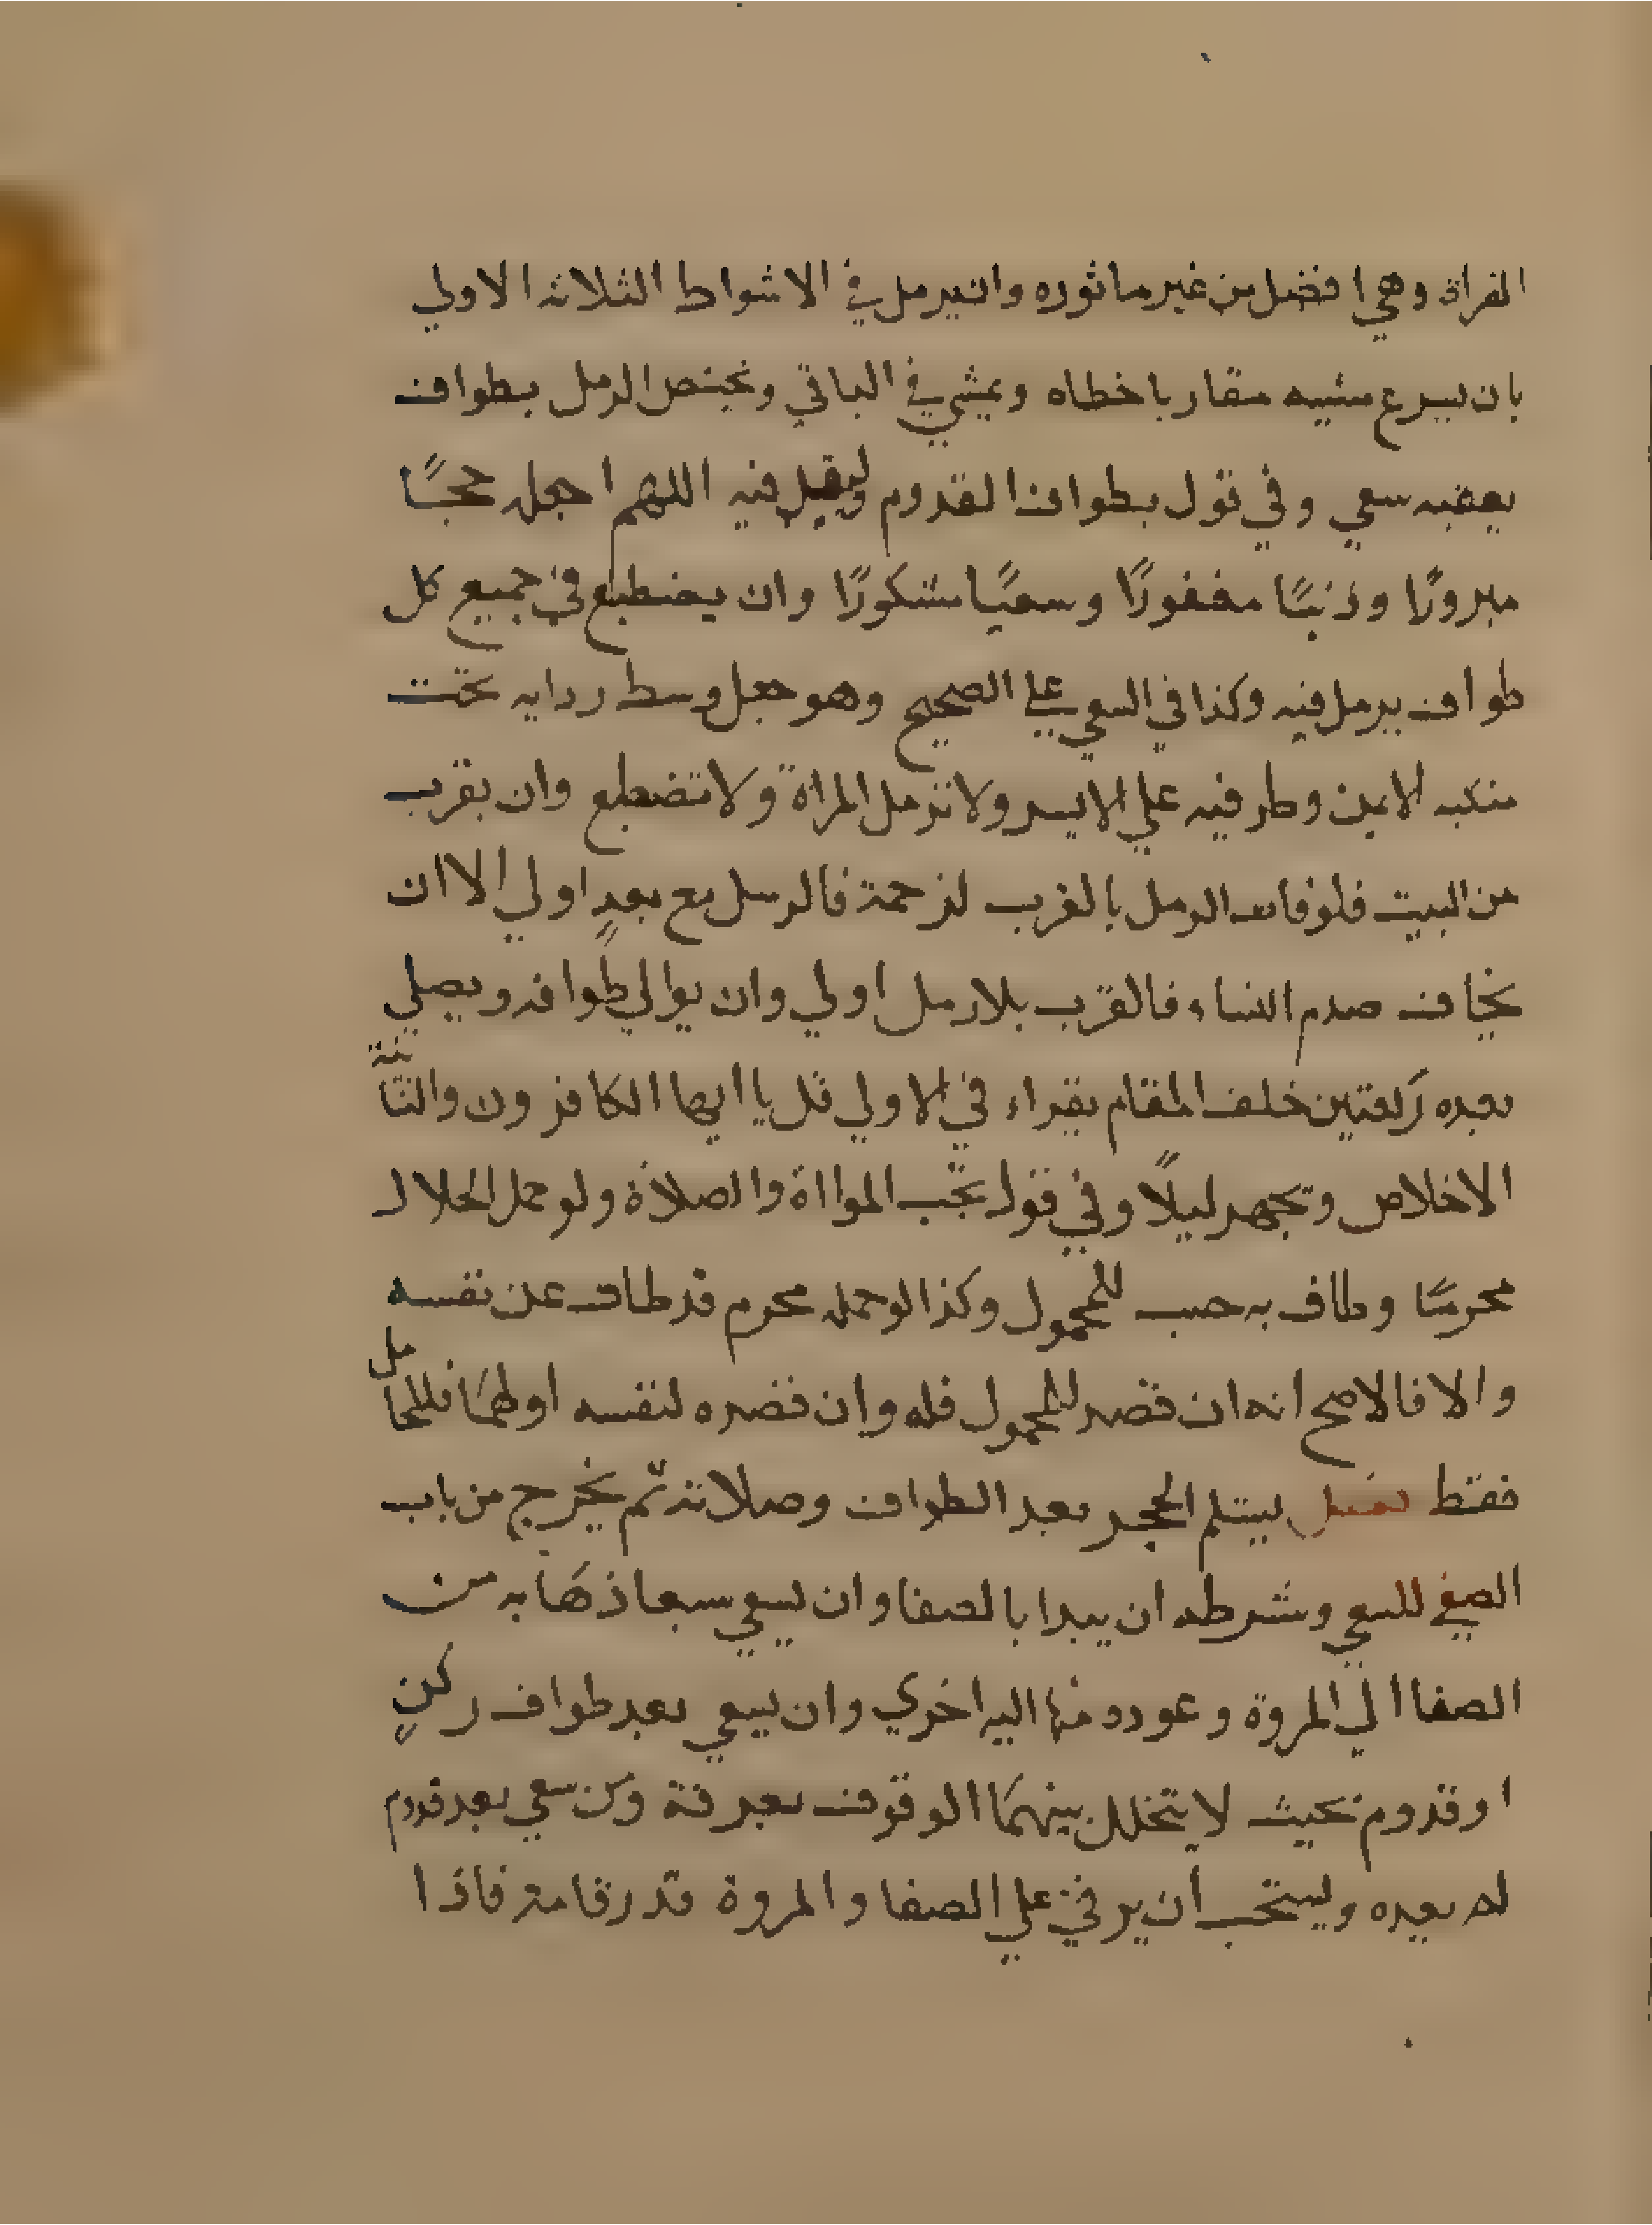 القراة وهي افضل من غير ماثوره وان يرمل في الاشواط الثلاثه الاولي
بان يسرع مشيه مقاربا خطاه ويمشي في الباقي ويختص الرمل بطواف
يعقبه سعي وفي قول بطواف القدوم وليقل فيه اللهم اجعله حجًا
مبرورًا وذنبًا مغفورًا وسعيًا مشكورًا وان يضطبع في جميع كل
طواف يرمل فيه وكذا في السعي علي الصحيح وهو جعل وسط ردايه تحت
منكبه الايمن وطرفيه علي الايسر ولا ترمل المراة ولا تضطبع وان يقرب
من البيت فلو فات الرمل بالقرب لزحمة فالرمل مع بعدٍ اولي الا ان
يخاف صدم النساء فالقرب بلا رمل اولي وان يوالي طوافه ويصلي
بعده ركعتين خلف المقام يقراء في الاولي قل يا ايها الكافرون والثانية
الاخلاص ويجهر ليلًا وفي قول تجب الموااة والصلاة ولو حمل الحلال
محرمًا وطاف به حسب للمحمول وكذا لو حمله محرم قد طاف عن نفسه
والا فالاصح انه ان قصد للمحمول فله وان قصده لنفسه او لهما فللحامل
فقط فصل يستلم الحجر بعد الطواف وصلاته ثم يخرج من باب
الصفي للسعي وشرطه ان يبدا بالصفا وان يسعي سبعا ذهابه من
الصفا الي المروة وعوده منها اليه اخري وان يسعي بعد طواف ركنٍ
او قدوم بحيث لا يتخلل بينهما الوقوف بعرفة ومن سعي بعد قدوم
لم يعده ويستحب ان يرقي علي الصفا والمروة قدر قامة فاذا